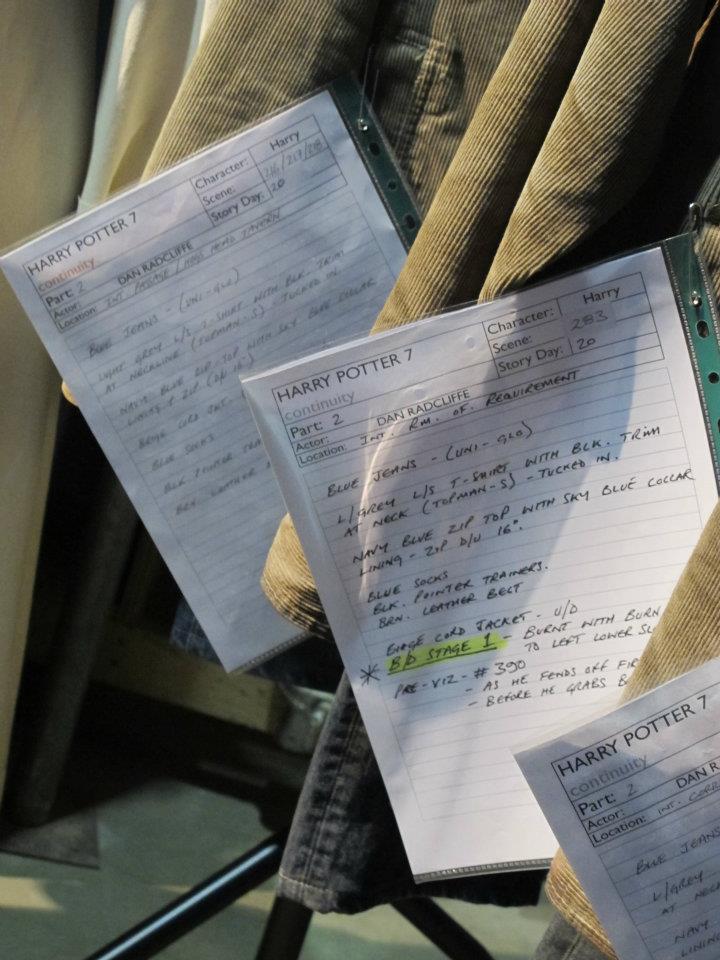 HARRY POTTER 7
continuity
Part: 2
Actor: DAN RADCLIFFE
Location: INT PASSAGE / HOGS HEAD TAVERN
Character: Harry
Scene:
Story Day: 20
BLUE JEANS - (UNI-GLO)
LIGHT GREY L/S T-SHIRT WITH BLK. TRIM
AT NECKLINE (TOPMAN-S) TUCKED IN.
NAVY BLUE ZIP TOP WITH SKY BLUE COLLAR
ZIP (D/U 16")
CORD JKT.
BLUE SOCKS
BLK POINTER TRA
BRN. LEATHER
HARRY POTTER 7
continuity
Part: 2
Actor: DAN RADCLIFFE
Location: INT. RM. OF. REQUIREMENT
Character: Harry
Scene: 283
Story Day: 20
BLUE JEANS - (UNI-GLO)
L/GREY L/S T-SHIRT WITH BLK. TRIM
AT NECK (TOPMAN-S) - TUCKED IN.
NAVY BLUE ZIP TOP WITH SKY BLUE COLLAR
LINING - ZIP D/U 16".
BLUE SOCKS
BLK. POINTER TRAINERS.
BRN. LEATHER BELT
BIEGE CORD JACKET - U/D
* B/D STAGE 1 - BURNT WITH BURN
TO LEFT LOWER SL
PRE-VIZ - #390
- AS HE FENDS OFF FIR
- BEFORE HE GRABS B
HARRY POTTER 7
continuity
Part: 2
Actor: DAN R
Location: INT. CORR
BLUE JEANS
L/GREY
AT NECK
NAVY
LINING